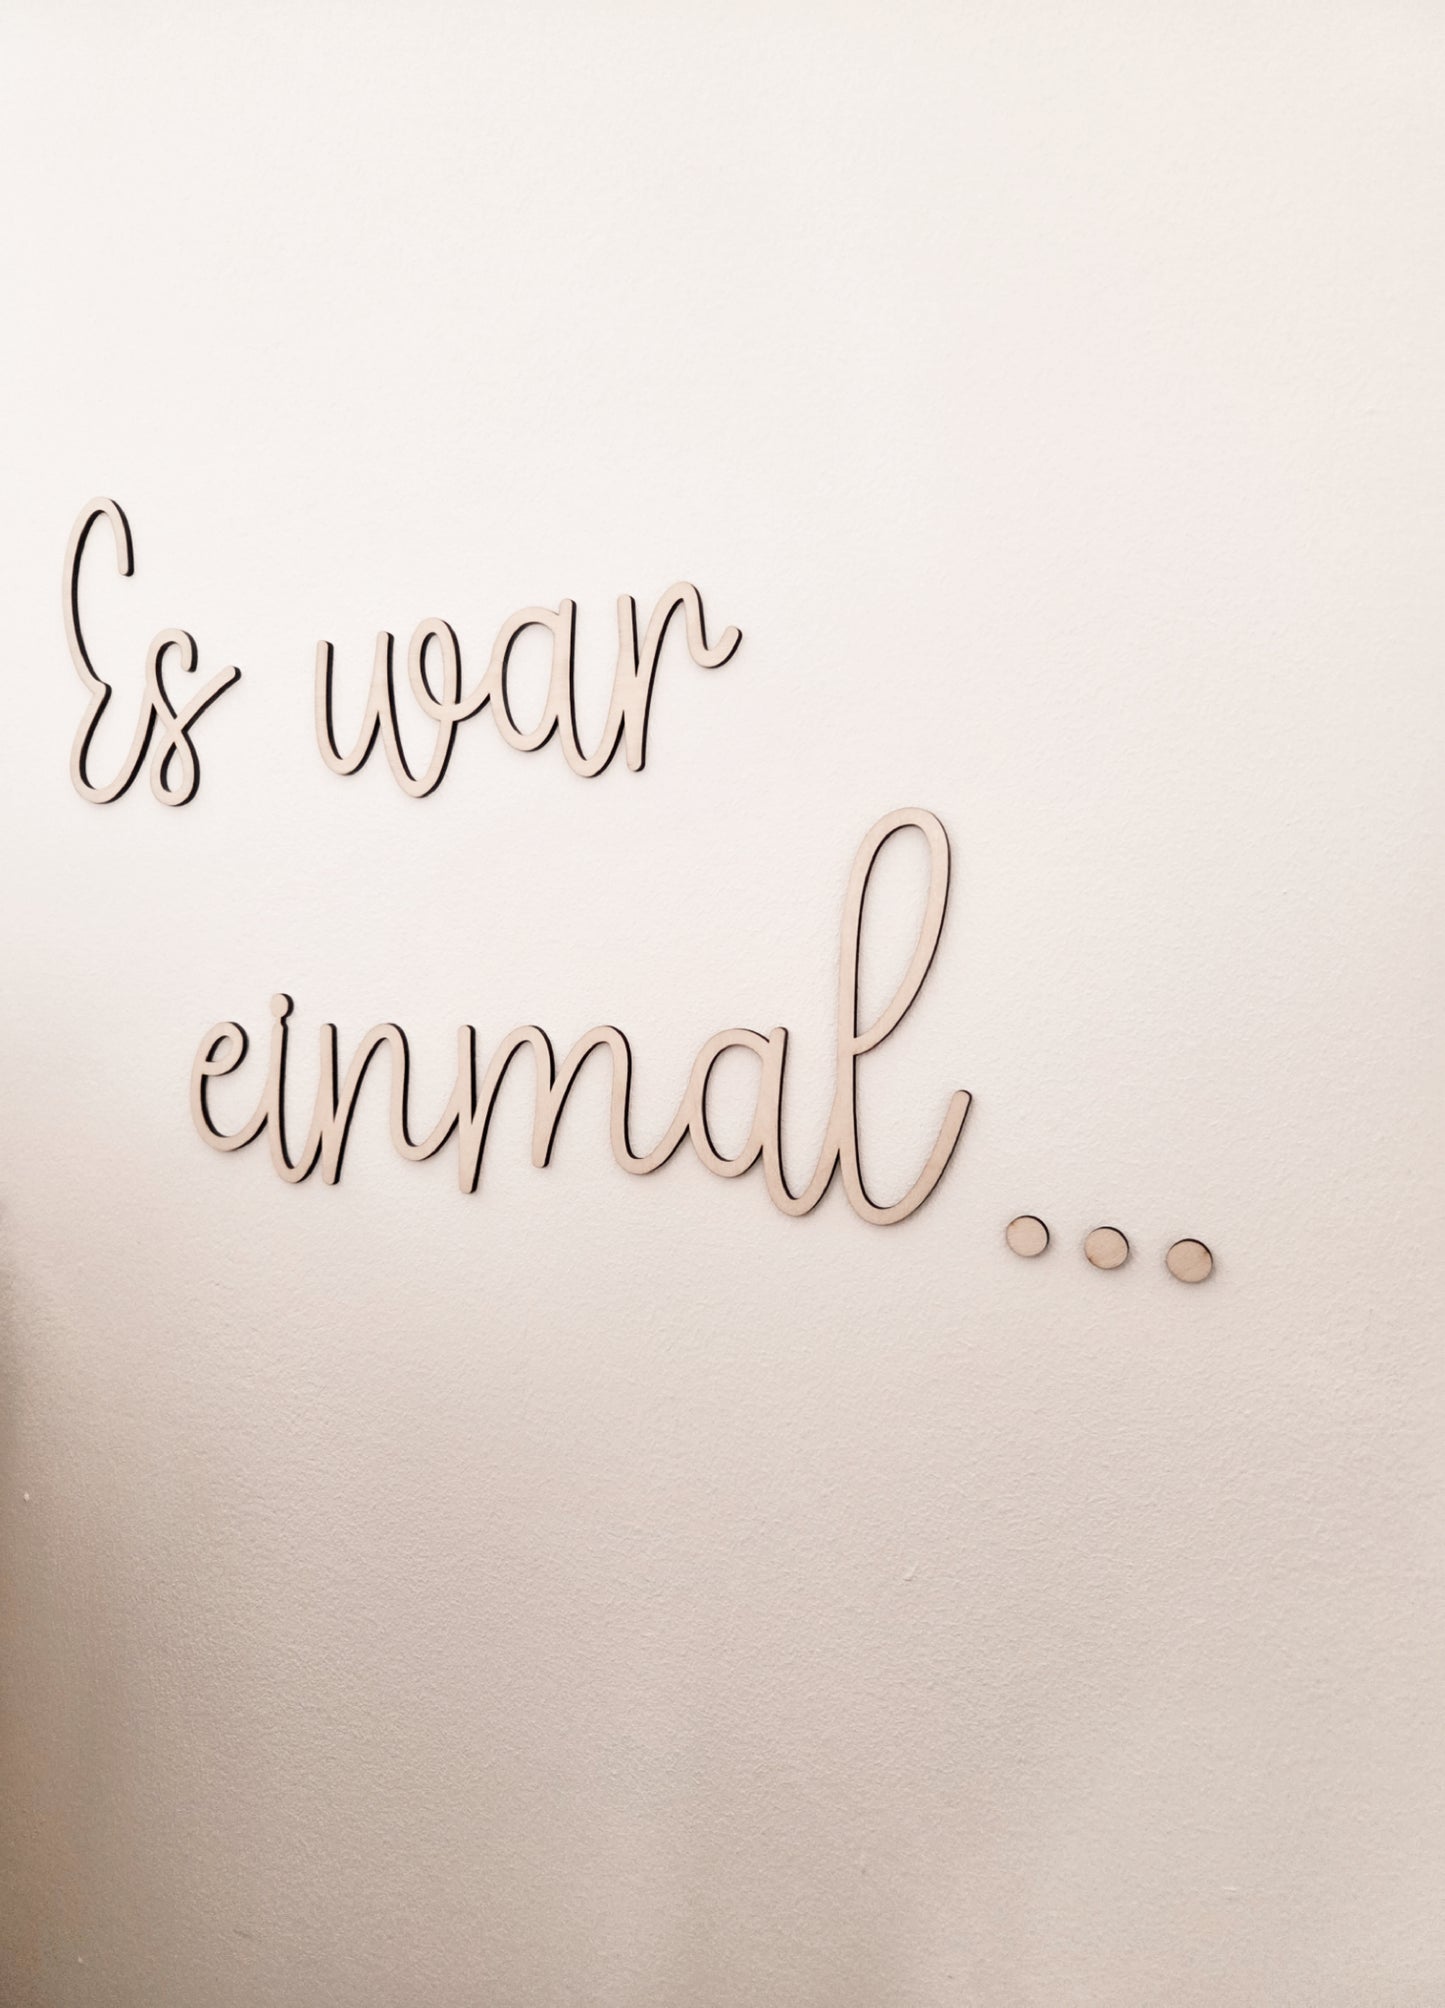 Es war
einmal...